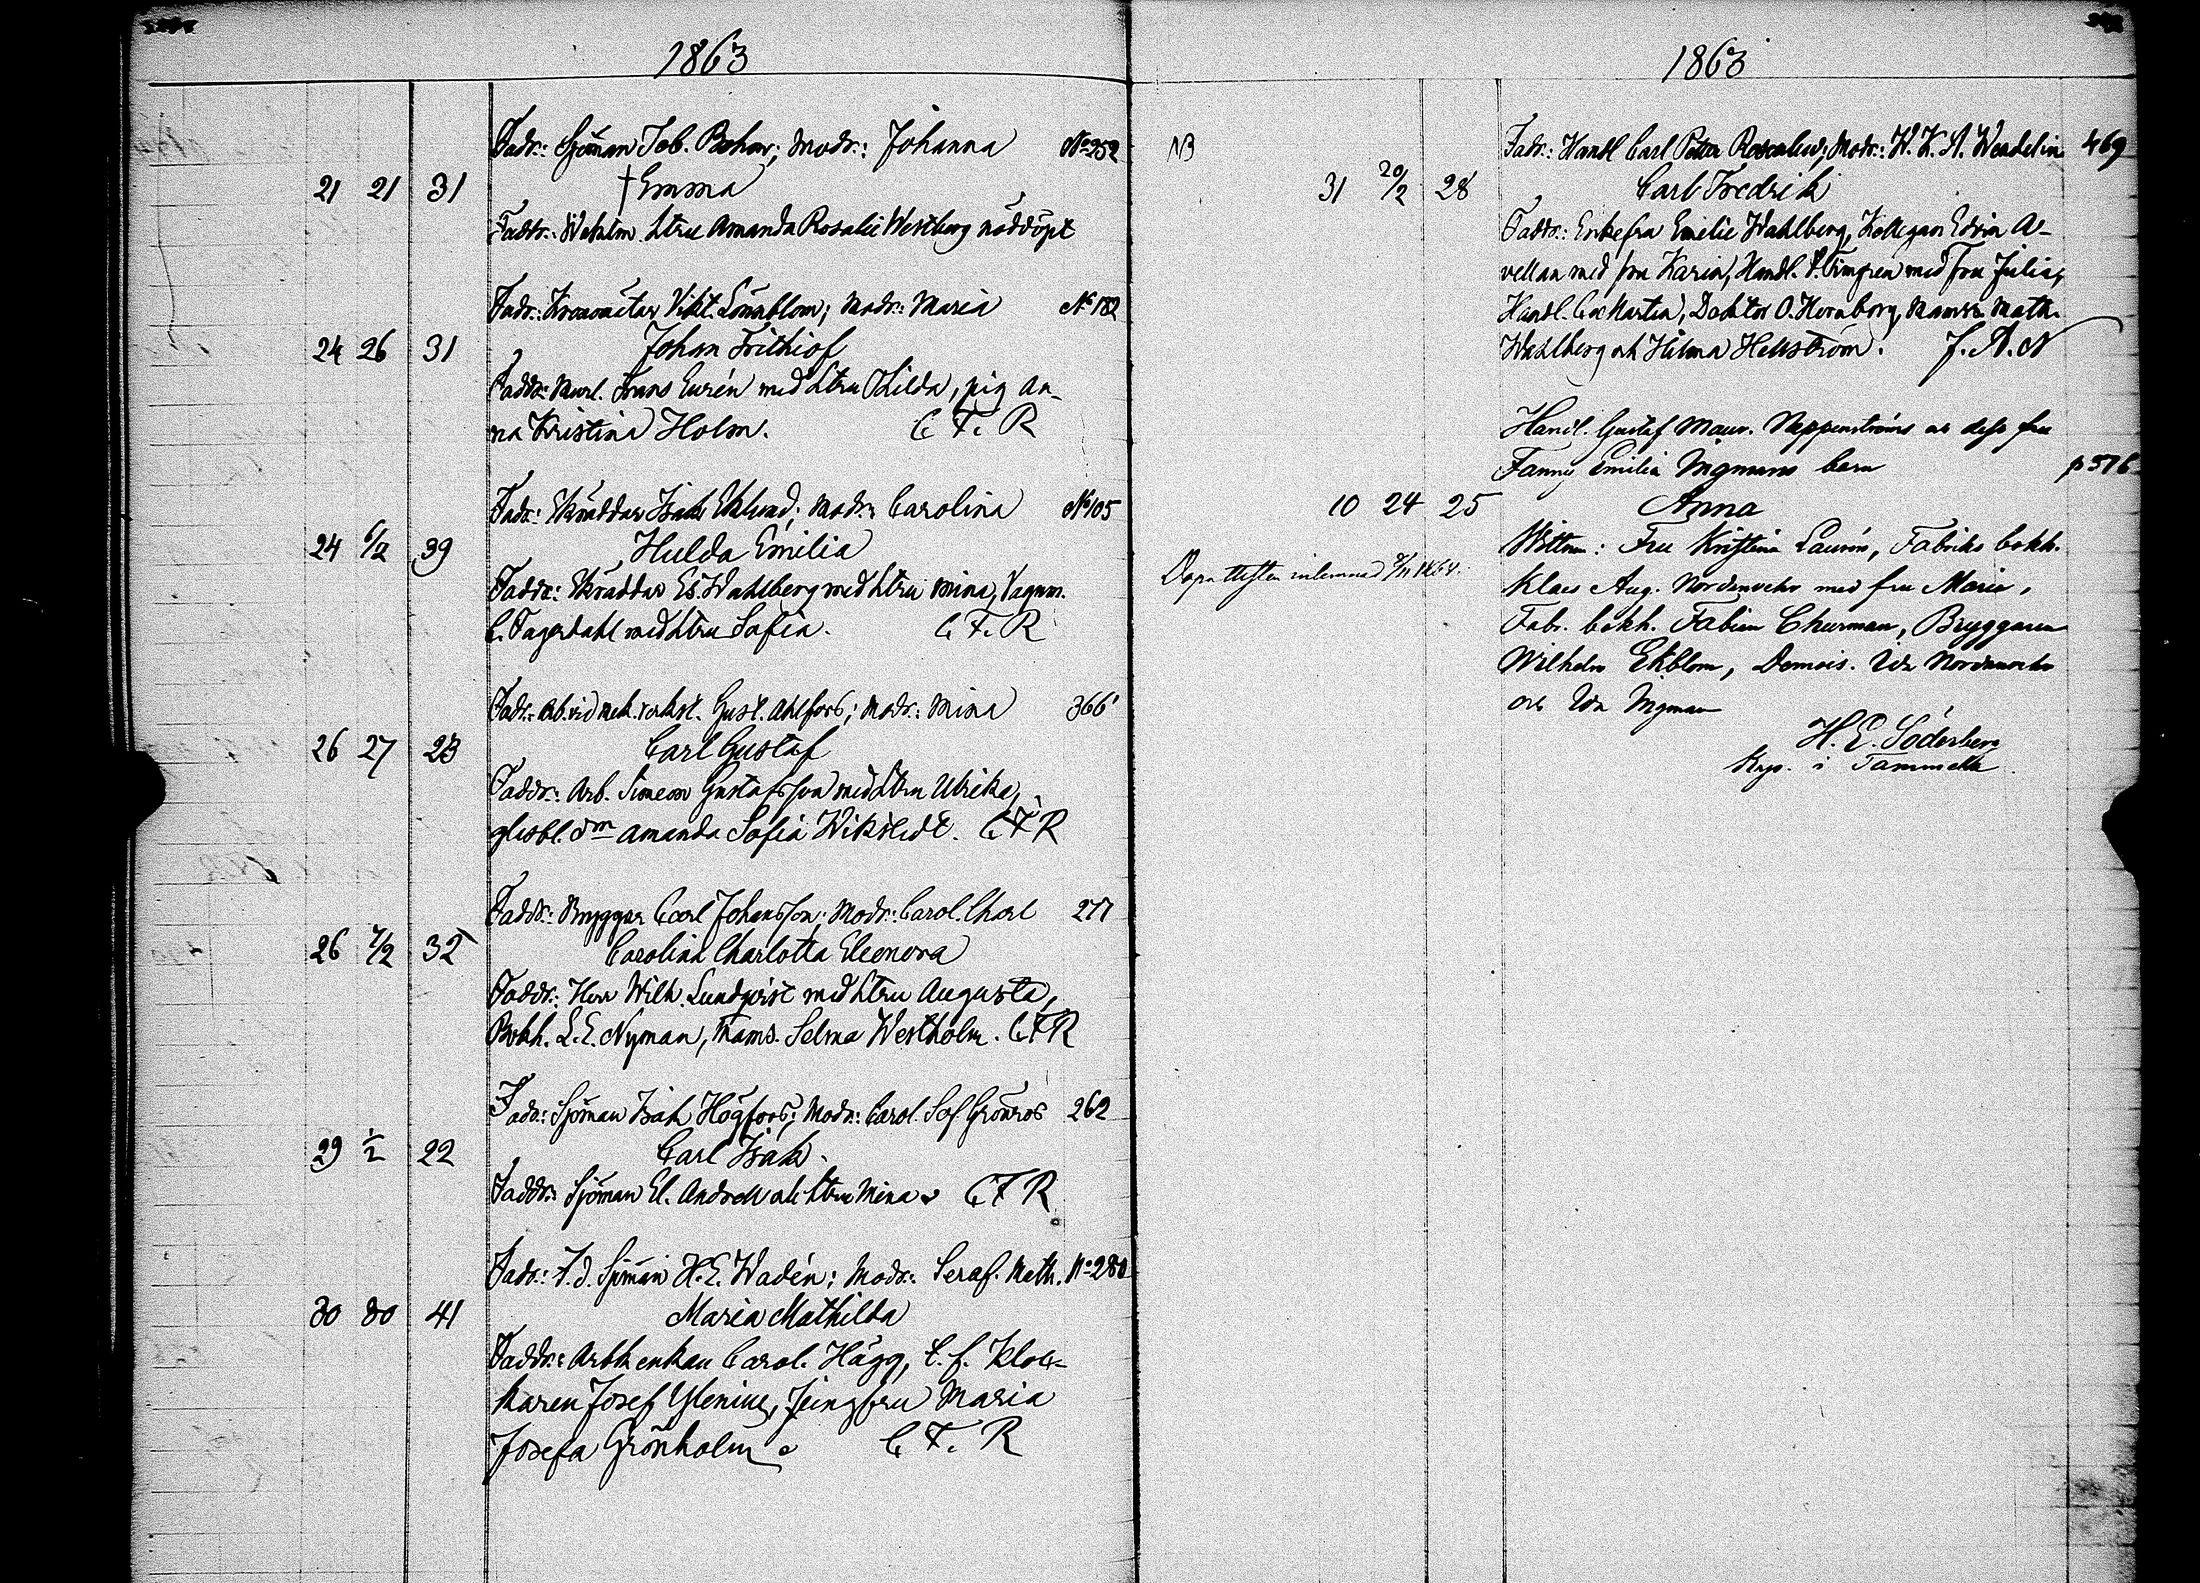 1863
Fadr.: Sjöman Joh. Boham; Modr.: Johanna No 252
21 21 31 † Emma
Faddr.: Wektm. htru Amanda Rosalie Westberg nöddöpt
Fadr.: Vikt. Lönnblom; Modr.: Maria No 182
24 26 31 Johan Frithiof
Faddr: Murl. Frans Eurén med htru Thilda, pig An-
na Kristina Holm. C. F. R
Fadr.: Skräddar Isak Eklund; Modr: Carolina No 105
24 6/2 39 Hulda Emilia
Faddr.: Skräddar Es. Wahlberg med htru Mina, Vagnm.
C. Fagerdahl med htru Sofia. C. F. R
Fadr.: Arb. vid mek. verkst. Gust. Ahlfors; Modr.: Mina 366
26 27 23 Carl Gustaf
Faddr.: Arb. Simeon Gustafsson med htru Ulrika,
glasbl. dm Amanda Sofia Wikstedt. C F R
Fadr.: Bryggar Carl Johansson; Modr.: Carol. Charl 277
26 7/2 32 Carolina Charlotta Eleonora
Faddr.: Herr Wilh. Lundqvist med htru Augusta,
Bokh. L. E. Nyman, Mams. Selma Westholm. C F R
Fadr.: Sjöman Isak Högfors; Modr.: Carol. Sof Grönros 262
29 1/2 22 Carl Isak.
Faddr: Sjöman El. Andsell och htru Mina C F R
Fadr.: F. d. Sjöman H. E. Wadén; Modr.: Seraf. Math. No 280
30 30 41 Maria Mathilda
Faddr.: Arbk enkan Carol. Hägg, t. f. Kloc-
karen Josef Ylenius, Jungfru Maria
Josefa Grönholm C. F. R
1863
NB Fadr.: Handl Carl Petter Rosenlew; Modr.: W. K. A. Wendelin 469
31 20/2 28 Carl Fredrik
Faddr.: Enkefru Emelie Wahlberg, Kollegan Edvin A-
vellan med fru Karin, Handl. med fru Julia,
Handl. C. Martin, Doktor O. Hernborg, Mams. Math.
Wahlberg och Hilma Hellström. F. A. N
Handl. Gustaf Maur. Nappenströms och dess fru
Fanny Emilia Ingmans barn p 576
10 24 25 Anna
Dopattesten inlemnad 1864. Wittnen: Fru Kristina Laurén, Fabriks bokh.
Klaes Aug. Nordensvehr med fru Maria,
Fabr. bokh. Fabian Churman, Bryggaren
Wilhelm Ekblom, Demois. Ida
och Ida Ingman
H. E. Söderberg
Kyo. i Tammela.